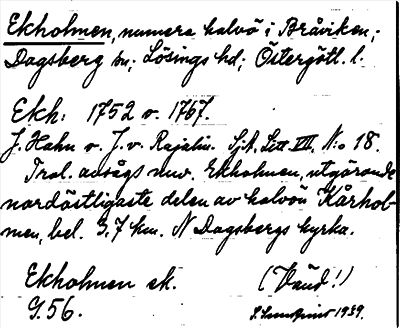 Ekholmen, numera halvö i Bråviken;
Dagsberg sn; Lösings hd; Östergötl. l.
Ekh: 1752 o. 1767.
J. Hahn o. J. v. Rajalin. SjA. Litt VII, N:o 18.
Trol. avsågs nuv. Ekholmen, utgörande
nordöstligaste delen av halvön Kårhol-
men, bel. 3,7 km. N Dagsbergs kyrka.
Ekholmen ek.
(Vaud!)
G.56.
1939.